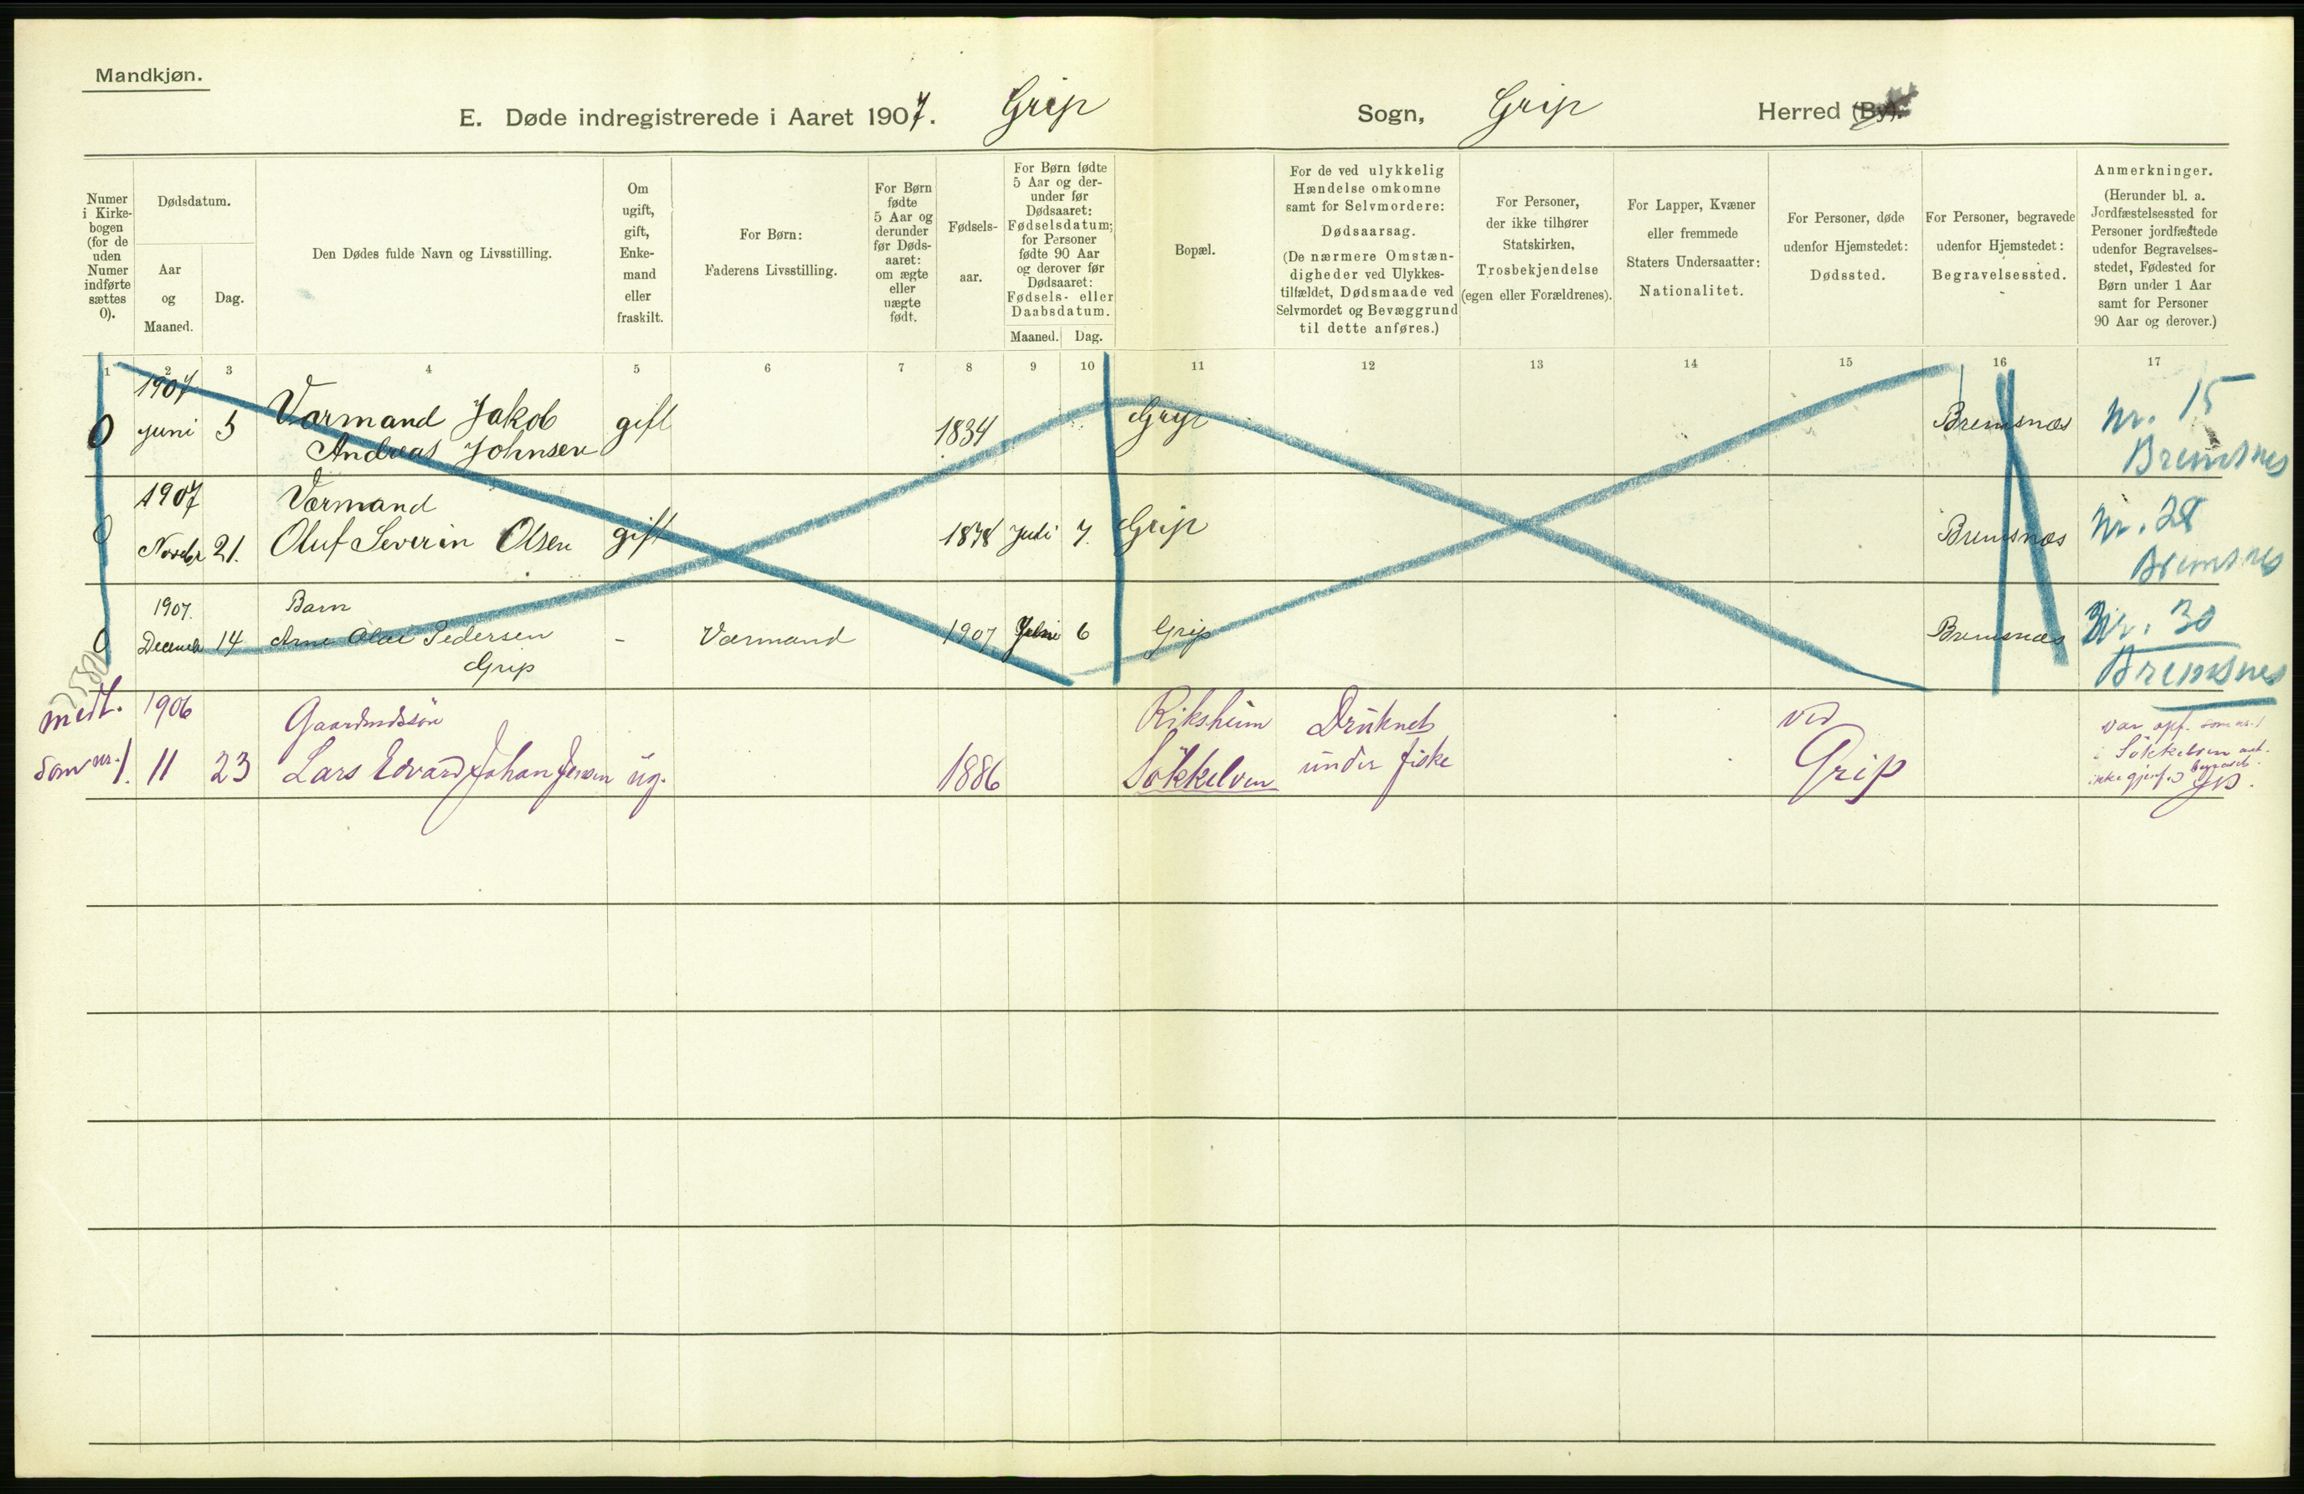 Mandkjøn.
E. Døde indregistrerede i Aaret 1907. Grip Sogn, Grip Herred (By).
Numer
i Kirke-
bogen
(for de
uden
Numer
indførte
sættes
0).
Dødsdatum.
Aar
og
Maaned.
Dag.
Den Dødes fulde Navn og Livsstilling.
Om
ugift,
gift,
Enke-
mand
eller
fraskilt.
For Børn:
Faderens Livsstilling.
For Børn
fødte
5 Aar og
derunder
før Døds-
aaret:
om ægte
eller
uægte
født.
Fødsels-
aar.
For Børn fødte
5 Aar og der-
under før
Dødsaaret:
Fødselsdatum;
for Personer
fødte 90 Aar
og derover før
Dødsaaret:
Fødsels- eller
Daabsdatum.
Maaned. Dag.
Bopæl.
For de ved ulykkelig
Hændelse omkomne
samt for Selvmordere:
Dødsaarsag.
(De nærmere Omstæn-
digheder ved Ulykkes-
tilfældet, Dødsmaade ved
Selvmordet og Bevæggrund
til dette anføres.)
For Personer,
der ikke tilhører
Statskirken,
Trosbekjendelse
(egen eller Forældrenes).
For Lapper, Kvæner
eller fremmede
Staters Undersaatter:
Nationalitet.
For Personer, døde
udenfor Hjemstedet:
Dødssted.
For Personer, begravede
udenfor Hjemstedet:
Begravelsessted.
Anmerkninger.
(Herunder bl. a.
Jordfæstelsessted for
Personer jordfæstede
udenfor Begravelses-
stedet, Fødested for
Børn under 1 Aar
samt for Personer
90 Aar og derover.)
1 2 3 4 5 6 7 8 9 10 11 12 13 14 15 16 17
1907 Værmand Jakob gift Grip Bremsnæs Nr. 15
0 Juni 5 Andreas Johnsen 1834 Bremsnes
1907 Værmand
0 Novebr 21. Oluf Severin Olsen gift 1878 Juli 7. Grip Bremsnæs Nr. 28
Bremsnes
1907. Barn
0 Decemb 14 Arne Olai Pedersen - Værmand 1907 6 Grip Bremsnæs Nr. 30
Grip Bremsnes
medt. 1906 Gaardmdssøn Riksheim Druknet ved var opf. som nr. 1
som nr. 1. 11 23 Lars Edvard Johan Jensen ug. 1886 Søkkelven under fiske Grip i Søkkelven
ikke